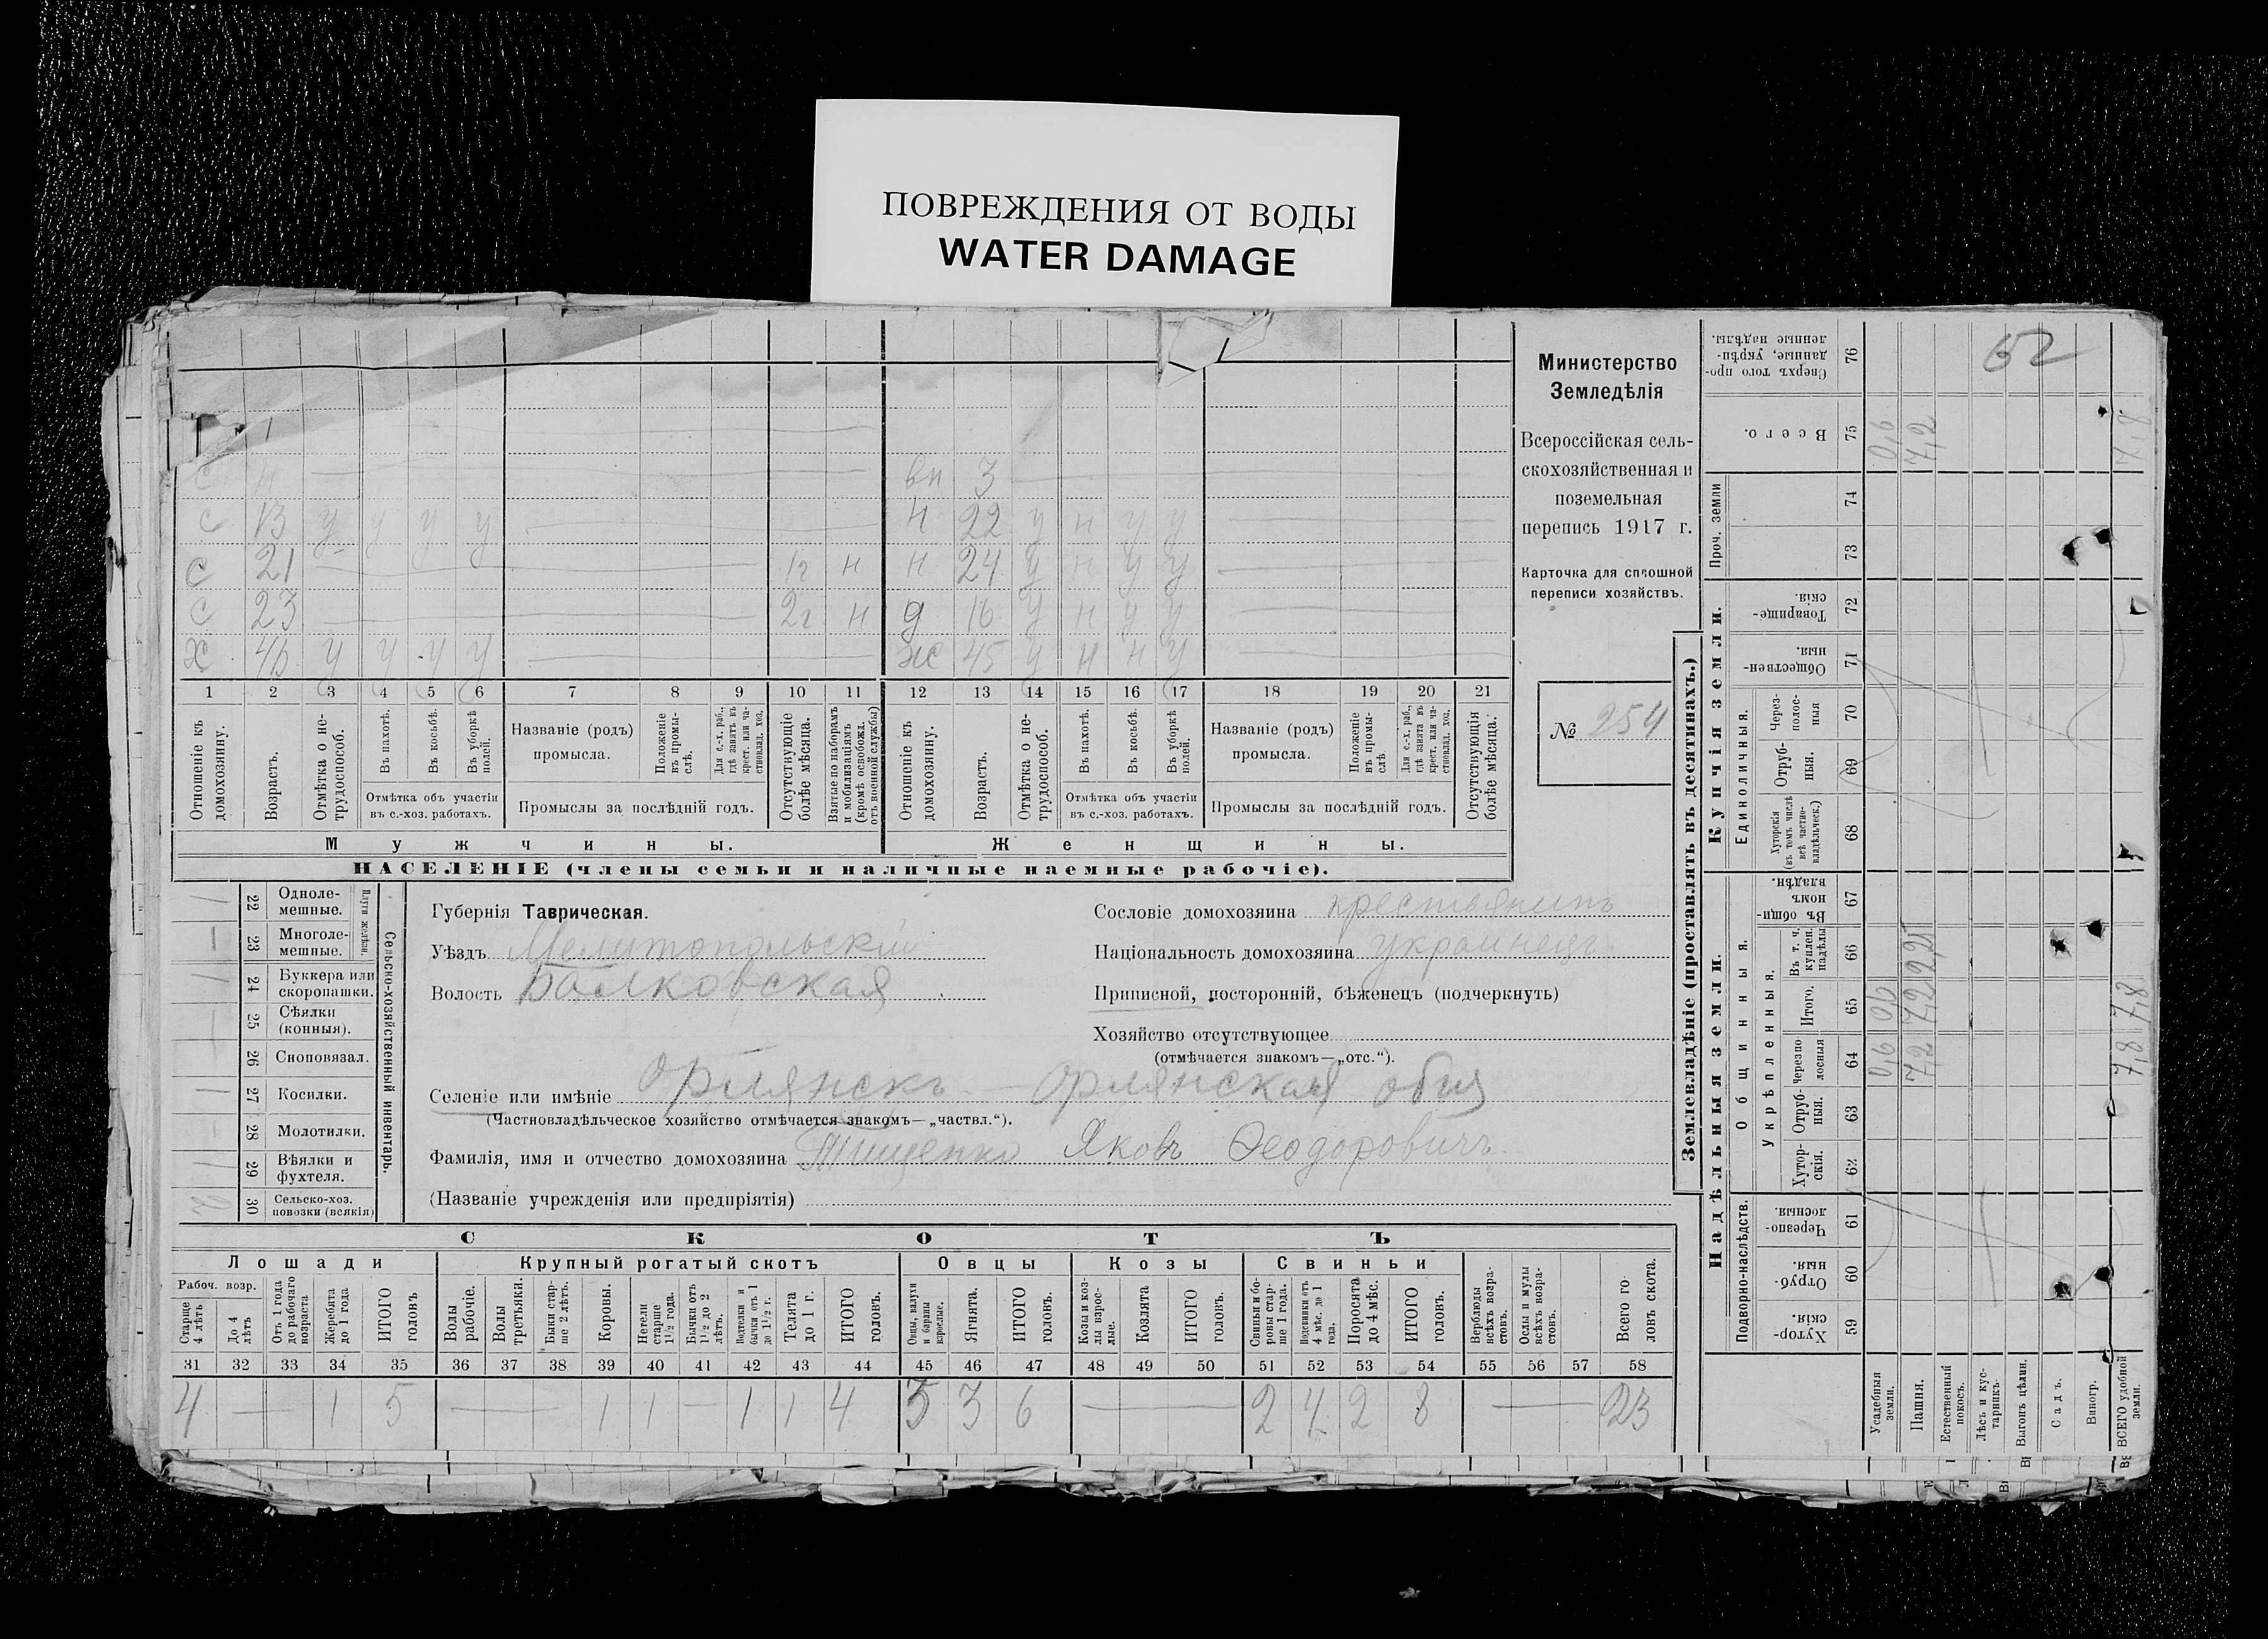 ПОВРЕЖДЕНИЯ ОТ ВОДЫ
WATER DAMAGE
52
Министерство
Земледѣлія
Всероссійская сель-
скохозяйственная и
поземельная
перепись 1917 г.
Карточка для сплошной
переписи хозяйствъ.
№ 254
вн 3
с 13 у у у у н 22 у н у у
с 21 1г н н 24 у н у у
с 23 2г н д 16 у н у у
х 46 у у у у ж 45 у н н у
1 2 3 4 5 6 7 8 9 10 11 12 13 14 15 16 17 18 19 20 21
Отношеніе къ домохозяину.
Возрастъ.
Отмѣтка о не-трудоспособ.
Въ пахотѣ.
Въ косьбѣ.
Въ уборкѣ полей.
Отмѣтка объ участіи
въ с.-хоз. работахъ.
Названіе (родъ)
промысла.
Положеніе въ промы-слѣ.
Для с.-х. раб., гдѣ занятъ въ крест. или ча-стновлад. хоз.
Промыслы за послѣдній годъ.
Отсутствующіе болѣе мѣсяца.
Взятые по наборамъ и мобилизаціямъ (кромѣ освобожд. отъ военной службы)
Отношеніе къ домохозяину.
Возрастъ.
Отмѣтка о не-трудоспособ.
Въ пахотѣ.
Въ косьбѣ.
Въ уборкѣ полей.
Отмѣтка объ участіи
въ с.-хоз. работахъ.
Названіе (родъ)
промысла.
Положеніе въ промы-слѣ
Для с.-х. раб., гдѣ занята въ крест. или ча-стновлад. хоз.
Промыслы за послѣдній годъ.
Отсутствующія болѣе мѣсяца.
Мужчины. Женщины.
НАСЕЛЕНІЕ (члены семьи и наличные наемные рабочіе).
Сельско-хозяйственный инвентарь.
Плуги желѣзн.
1 22 Одноле-мешные.
1 23 Многоле-мешные.
1 24 Буккера или скоропашки.
— 25 Сѣялки (конныя).
— 26 Сноповязал.
1 27 Косилки.
— 28 Молотилки.
1 29 Вѣялки и фухтеля.
2 30 Сельско-хоз. повозки (всякія)
Губернія Таврическая.
Уѣздъ Мелитопольскій
Волость Балковская
Сословіе домохозяина крестьянинъ
Національность домохозяина украинецъ
Приписной, посторонній, бѣженецъ (подчеркнуть)
Хозяйство отсутствующее
(отмѣчается знакомъ—„отс.“).
Селеніе или имѣніе Орлянскъ Орлянская
(Частновладѣльческое хозяйство отмѣчается знакомъ—„частвл.“).
Фамилія, имя и отчество домохозяина Тищенко Яковъ Феодоровичъ
(Названіе учрежденія или предпріятія)
СКОТЪ
Лошади Крупный рогатый скотъ Овцы Козы Свиньи
Рабоч. возр.
Старше 4 лѣтъ
До 4 лѣтъ
Отъ 1 года до рабочаго возраста
Жеребята до 1 года
ИТОГО головъ
Волы рабочіе.
Волы третьяки.
Быки стар-ше 2 лѣтъ.
Коровы.
Нетели старше 1½ года.
Бычки отъ 1½ до 2 лѣтъ.
Нетелки и бычки отъ 1 до 1½ г.
Телята до 1 г.
ИТОГО головъ.
Овцы, валухи и бараны взрослые.
Ягнята.
ИТОГО головъ.
Козы и коз-лы взрос-лые.
Козлята
ИТОГО головъ.
Свиньи и бо-ровы стар-ше 1 года.
Подсвинки отъ 4 мѣс. до 1 года.
Поросята до 4 мѣс.
ИТОГО головъ.
Верблюды всѣхъ возра-стовъ.
Ослы и мулы всѣхъ возра-стовъ.
Всего го-ловъ скота.
31 32 33 34 35 36 37 38 39 40 41 42 43 44 45 46 47 48 49 50 51 52 53 54 55 56 57 58
4 — 1 5 — 1 1 — 1 1 4 3 3 6 — 2 4 2 8 — 23
Землевладѣніе (проставлять въ десятинахъ.)
Надѣльныя земли. Купчія земли.
Подворно-наслѣдств.
Хутор-скія. 59
Отруб-ныя. 60
Черезпо-лосныя. 61
Общинныя.
Укрѣпленныя.
Хутор-скія. 62
Отруб-ныя. 63
Черезпо-лосныя 64
Итого. 65
Въ т. ч. куплен. надѣлы 66
Въ общи-номъ владѣн. 67
Единоличныя.
Хуторскія (въ томъ числѣ всѣ частно-владѣльческ.) 68
Отруб-ныя. 69
Через-полос-ныя 70
Обществен-ныя. 71
Товарище-скія. 72
Проч. земли
73
74
Всего. 75
Сверхъ того про-данные, укрѣп-ленные надѣлы. 76
Усадебныя земли. 0,6 0,6 0,6
Пашня. 7,2 7,2 7,2
Естественный покосъ.
Лѣсъ и кус-тарникъ.
Выгонъ цѣлин.
Садъ.
Виногр.
ВСЕГО удобной земли. 7,8 7,8 7,8